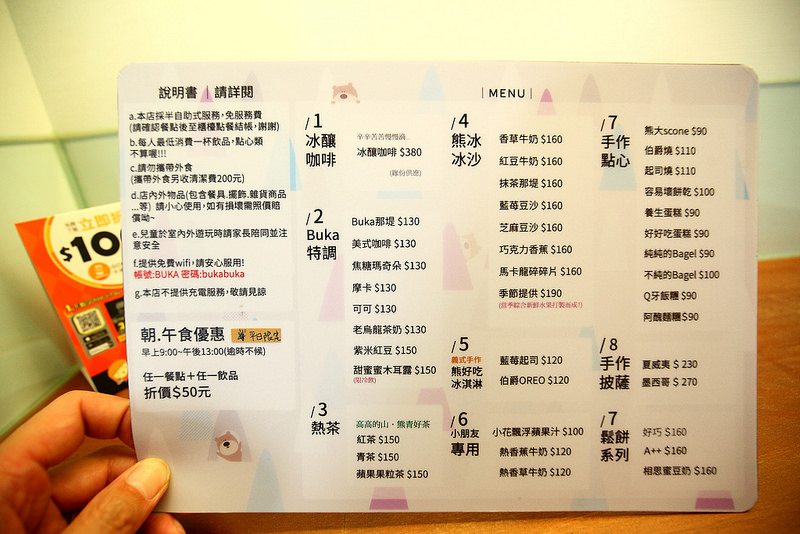 說明書｜請詳閱
a.本店採半自助式服務,免服務費
(請確認餐點後至櫃檯點餐結帳,謝謝)
b.每人最低消費一杯飲品,點心類
不算喔!!!
c.請勿攜帶外食
(攜帶外食另收清潔費200元)
d.店內外物品(包含餐具.擺飾.雜貨商品
...等) 請小心使用,如有損壞需照價賠
償呦~
e.兒童於室內外遊玩時請家長陪同並注
意安全
f.提供免費wifi,請安心服用!
帳號:BUKA 密碼:bukabuka
g.本店不提供充電服務,敬請見諒
朝.午食優惠 平日限定
早上9:00~午後13:00(逾時不候)
任一餐點＋任一飲品
折價$50元
|MENU|
/1
冰釀
咖啡
辛辛苦苦慢慢滴..
冰釀咖啡 $380
(緣份供應)
/2
Buka
特調
Buka那堤 $130
美式咖啡 $130
焦糖瑪奇朵 $130
摩卡 $130
可可 $130
老烏龍茶奶 $130
紫米紅豆 $150
甜蜜蜜木耳露 $150
(限冷飲)
/3
熱茶
高高的山．熊青好茶
紅茶 $150
青茶 $150
蘋果果粒茶 $150
/4
熊冰
冰沙
香草牛奶 $160
紅豆牛奶 $160
抹茶那堤 $160
藍莓豆沙 $160
芝麻豆沙 $160
巧克力香蕉 $160
馬卡龍碎碎片 $160
季節提供 $190
(當季綜合新鮮水果打製而成!)
/5
義式手作
熊好吃
冰淇淋
藍莓起司 $120
伯爵OREO $120
/6
小朋友
專用
小花飄浮蘋果汁 $100
熱香蕉牛奶 $120
熱香草牛奶 $120
/7
手作
點心
熊大scone $90
伯爵燒 $110
起司燒 $110
容易壞餅乾 $100
養生蛋糕 $90
好好吃蛋糕 $90
純純的Bagel $90
不純的Bagel $100
Q牙飯糰 $90
阿醜麵糰 $90
/8
手作
披薩
夏威夷 $ 230
墨西哥 $ 270
/7
鬆餅
系列
好巧 $160
A++ $160
相思蜜豆奶 $160
立即折
$10